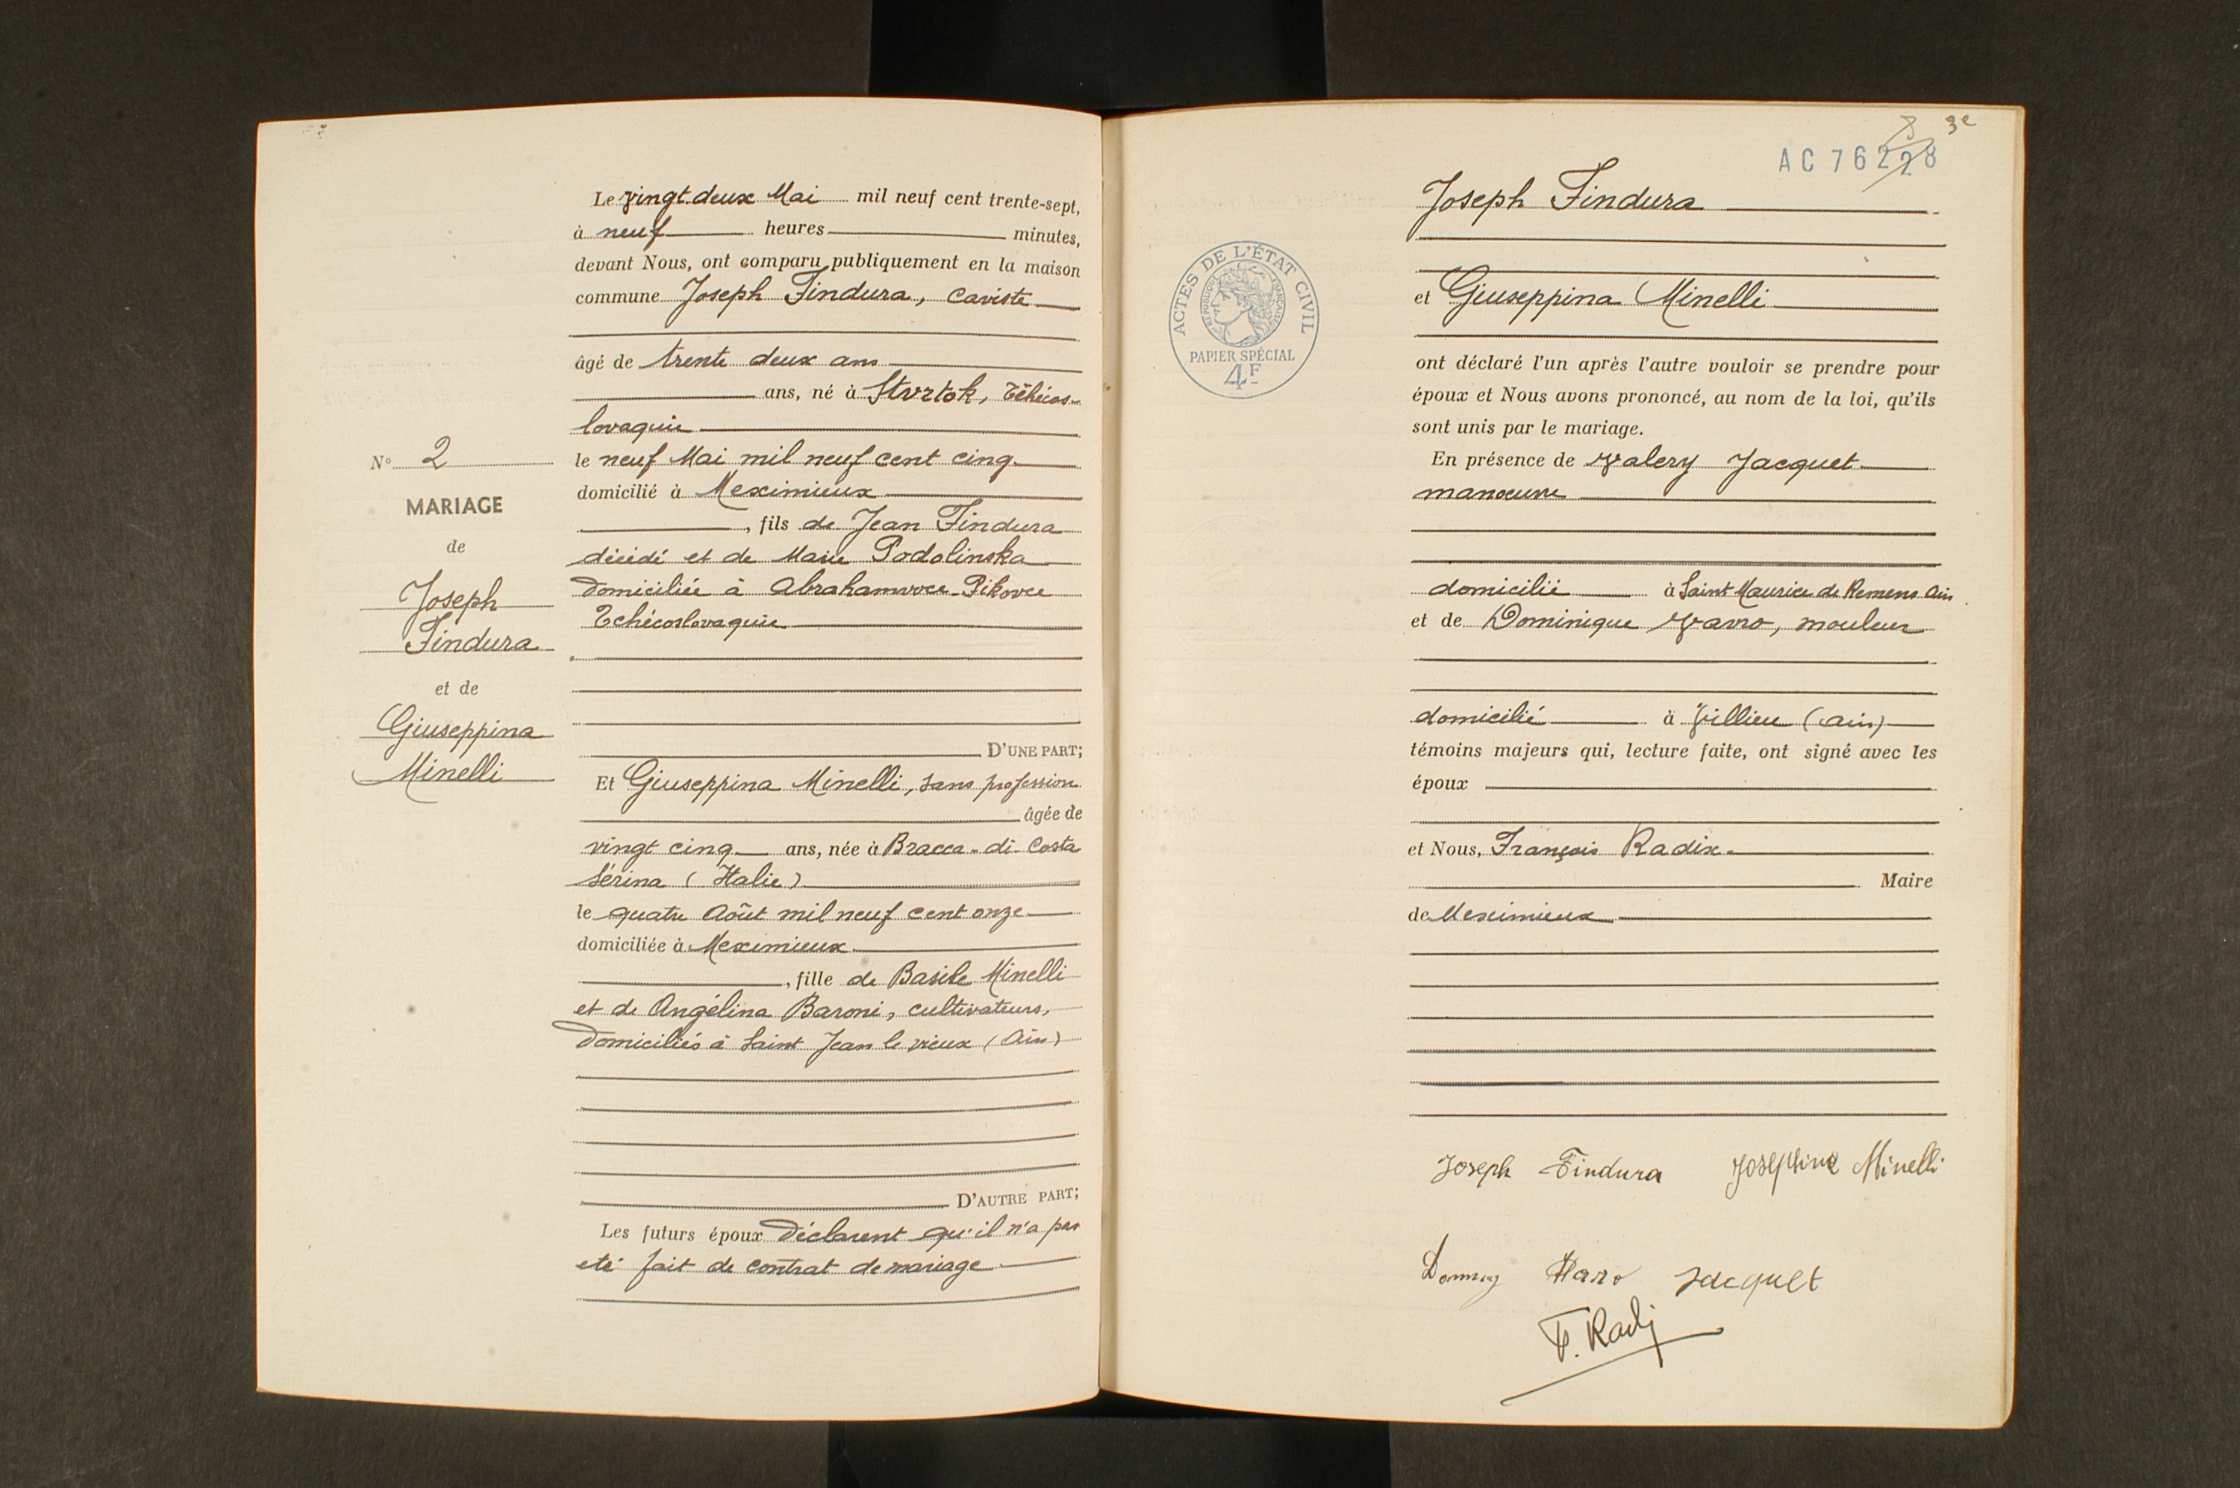 Le vingt deux Mai mil neuf cent trente-sept,
à neuf heures minutes,
devant Nous, ont comparu publiquement en la maison
commune Joseph Findura, caviste
âgé de trente deux ans
ans, né à Stvrtok, Tchécos-
lovaquie
le neuf Mai mil neuf cent cinq
domicilié à Meximieux
, fils de Jean Findura
décédé et de Marie Podolinska
domiciliée à Abrahamovce-Pikovce
Tchécoslovaquie
D'UNE PART;
Et Giuseppina Minelli, sans profession
âgée de
vingt cinq ans, née à Bracca-di-Costa
Sérina (Italie)
le quatre Août mil neuf cent onze
domiciliée à Meximieux
, fille de Basile Minelli
et de Angélina Baroni, cultivateurs,
domiciliés à Saint Jean le vieux (Ain)
D'AUTRE PART;
Les futurs époux déclarent qu'il n'a pas
été fait de contrat de mariage
N° 2
MARIAGE
de
Joseph
Findura
et de
Giuseppina
Minelli
3e
AC 76228
ACTES DE L'ÉTAT CIVIL
RÉPUBLIQUE FRANÇAISE
PAPIER SPÉCIAL
4F
Joseph Findura
et Giuseppina Minelli
ont déclaré l'un après l'autre vouloir se prendre pour
époux et Nous avons prononcé, au nom de la loi, qu'ils
sont unis par le mariage.
En présence de Valery Jacquet
manoeuvre
domicilié à Saint Maurice de Remens Ain
et de Dominique Varro, mouleur
domicilié à Villieu (Ain)
témoins majeurs qui, lecture faite, ont signé avec les
époux
et Nous, François Radix
Maire
de Meximieux
Joseph Findura Josephine Minelli
Jacquet
F. Radix